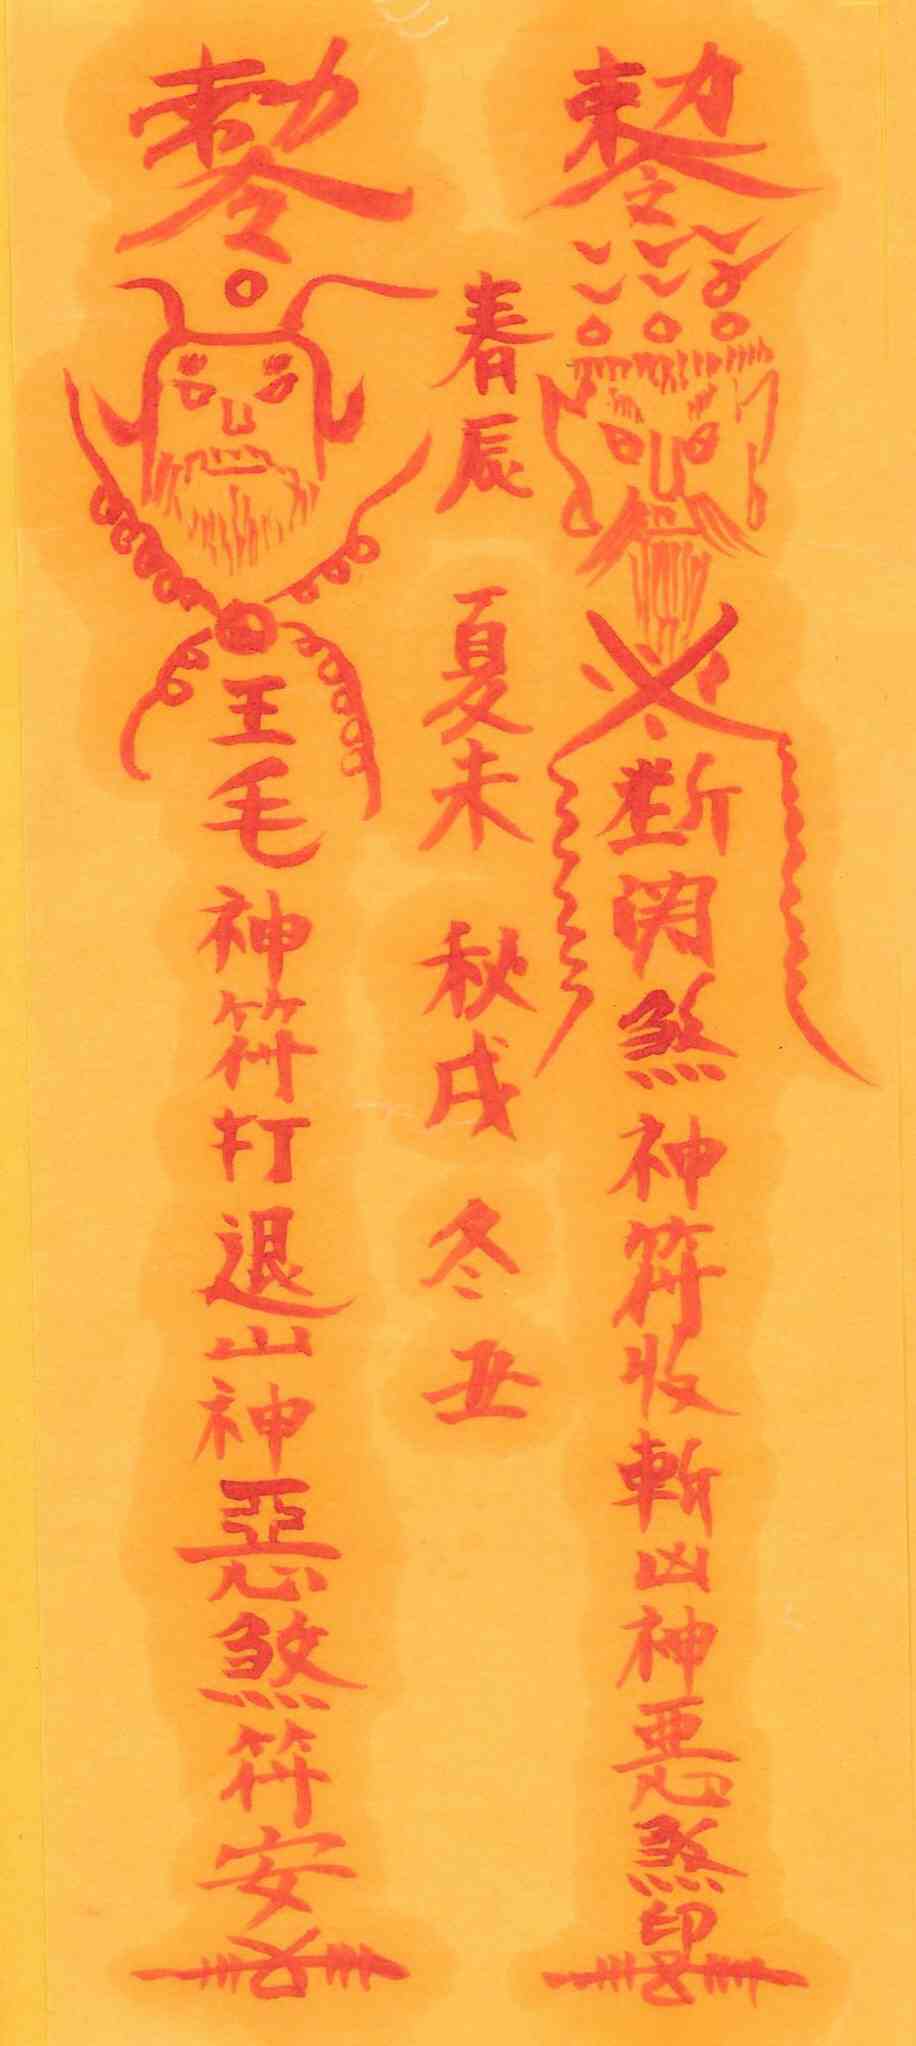 敕令
斷関煞神符收斬凶神悪煞印
春辰 夏未 秋戌 冬丑
敕令
王毛神符打退山神惡煞符安